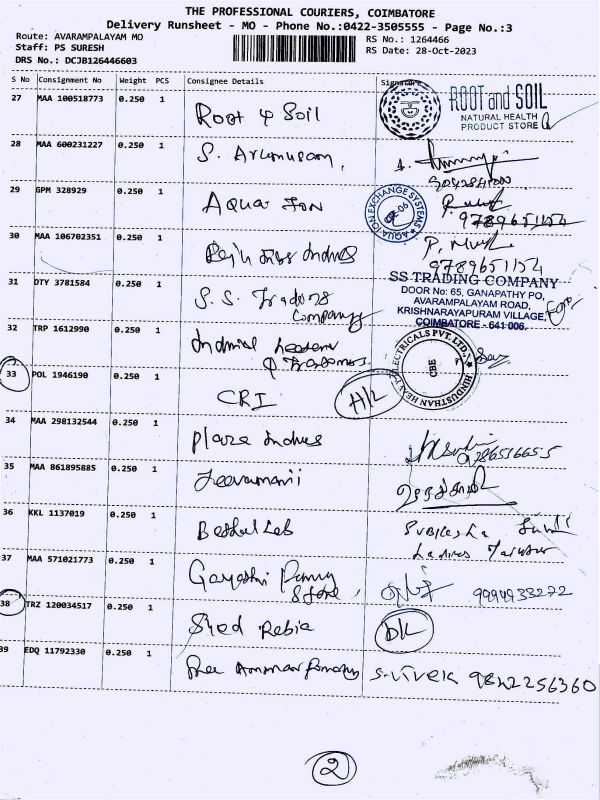 THE PROFESSIONAL COURIERS, COIMBATORE
Delivery Runsheet - MO - Phone No.:0422-3505555 - Page No.:3
Route: AVARAMPALAYAM MO
RS No.: 1264466
Staff: PS SURESH
RS Date: 28-Oct-2023
DRS No.: DCJB126446603
S No Consignment No Weight PCS Consignee Details Signature
27 MAA 100518773 0.250 1 Root & Soil
ROOT and SOIL
NATURAL HEALTH
PRODUCT STORE
28 MAA 600231227 0.250 1 S. Arumugam,
29 GPM 328929 0.250 1 Aqua Ion
AQUATION EXCHANGE SYSTEMS
9789651154
30 MAA 106702351 0.250 1 Indus
9789651154
31 DTY 3781584 0.250 1 S.S. Trading
Company
SS TRADING COMPANY
DOOR No: 65, GANAPATHY PO,
AVARAMPALAYAM ROAD,
KRISHNARAYAPURAM VILLAGE,
COIMBATORE - 641 006.
32 TRP 1612990 0.250 1
HINDUSTHAN HEAVY ELECTRICALS PVT. LTD.
CBE
33 POL 1946190 0.250 1 CRI H/L
34 MAA 298132544 0.250 1 Plaza Indus
35 MAA 861895885 0.250 1 Jeevamani
36 KKL 1137019 0.250 1 Bethul Leb
Ladies
37 MAA 571021773 0.250 1 Gayathri
Store, 9994933272
38 TRZ 120034517 0.250 1 Syed Rabia DK
39 EDQ 11792330 0.250 1 Sree Amman S. Vivek 9842256360
2